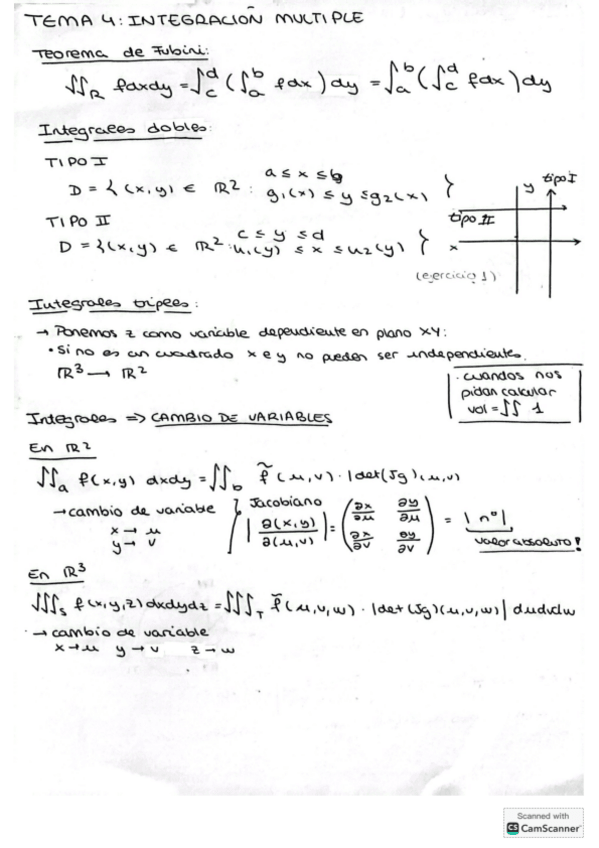 TEMA 4: INTEGRACIÓN MULTIPLE
Teorema de Fubini:
∬_R f dxdy = ∫_c^d (∫_a^b f dx) dy = ∫_a^b (∫_c^d f dx) dy
Integrales dobles:
TIPO I
D = { (x,y) ∈ ℝ² : a ≤ x ≤ b g₁(x) ≤ y ≤ g₂(x) }
y tipo I
TIPO II
D = {(x,y) ∈ ℝ² : c ≤ y ≤ d u₁(y) ≤ x ≤ u₂(y) }
tipo II
x
(ejercicio 1)
Integrales triples:
→ Ponemos z como variable dependiente en plano XY:
• Si no es un cuadrado x e y no pueden ser independiente.
ℝ³ → ℝ²
. cuandos nos
pidan calcular
vol = ∬ 1
Integrales => CAMBIO DE VARIABLES
En ℝ²
∬_a f(x,y) dxdy = ∬_b f̃(u,v) · |det(Jg)(u,v)
→ cambio de variable
x → u
y → v
Jacobiano
|∂(x,y)/∂(u,v)| = (∂x/∂u ∂y/∂u ∂x/∂v ∂y/∂v) = |nº|
valor absoluto!
En ℝ³
∭_S f(x,y,z) dxdydz = ∭_T f̃(u,v,w) · |det(Jg)(u,v,w)| dudvdw
→ cambio de variable
x → u y → v z → w
Scanned with
CS CamScanner